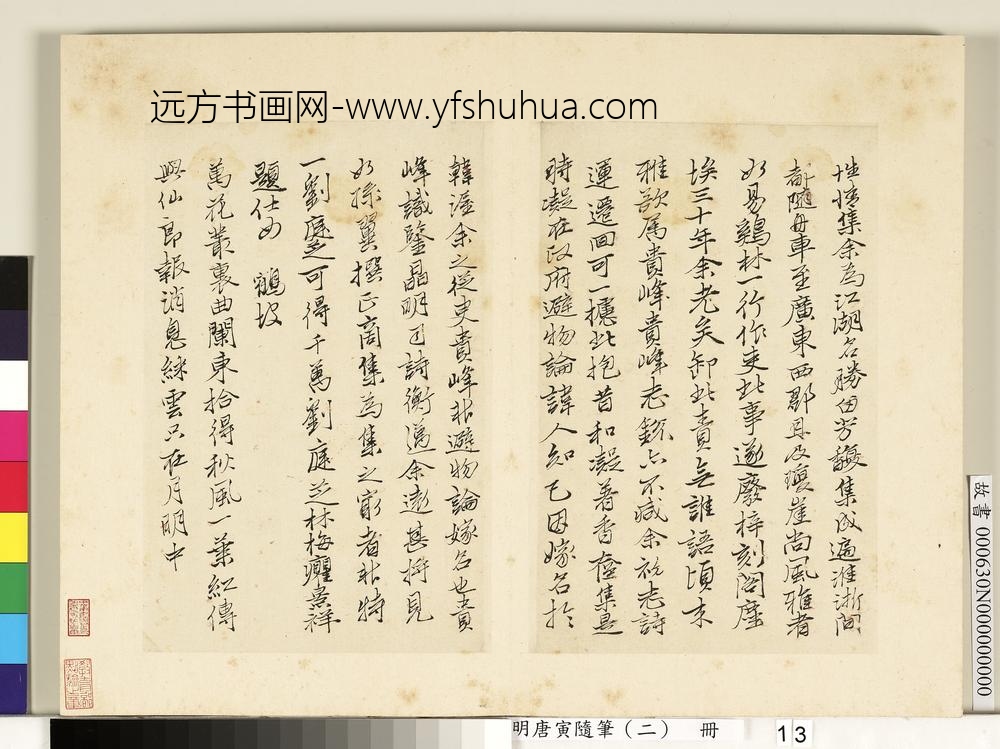 远方书画网-www.yfshuhua.com
性情集余為江湖名勝田芳馥集成遍淮浙間
都隨舟車至廣東西郡县及瓊崖尚風雅者
如易鷄林一行作吏此事遂廢梓刻閣塵
埃三十年余老矣卸此責與誰語頃末
雅欲屬貴峰貴峰志銳亦不减余壯志詩
運遷回可一攄此抱昔和凝著香奩集是
時凝在政府避物論諱人知已因嫁名於
韓渥余之從吏貴峰非避物論嫁名也貴
峰識鑒晶明司詩衡過余遠甚將見
如孫翼撰正商集為集之窮者非特
一劉庭芝可得千萬劉庭芝林梅癯景祥
題仕女 鶴坡
萬花叢裏曲闌東拾得秋風一葉紅傳
與仙郎報消息綠雲只在月明中
故書 000630N000000000
明唐寅隨筆(二) 冊
13